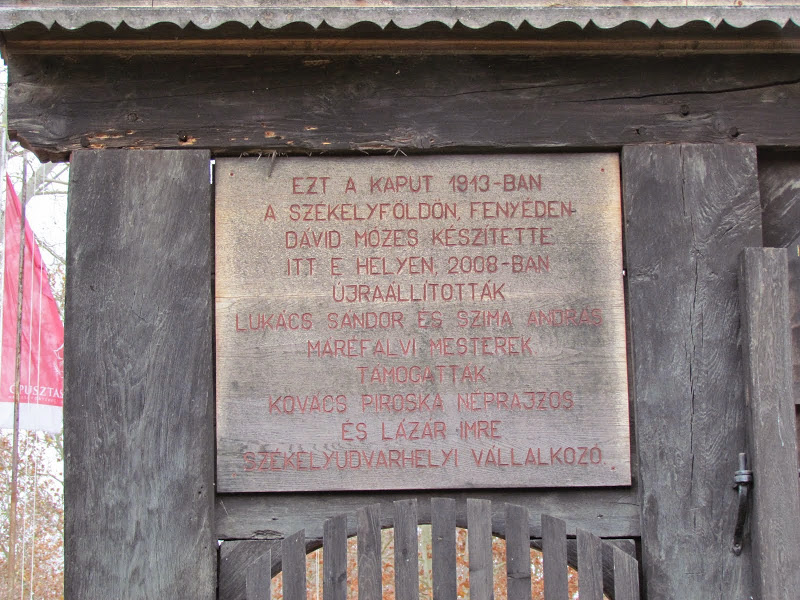 EZT A KAPUT 1913-BAN
A SZÉKELYFÖLDÖN, FENYÉDEN-
DÁVID MÓZES KÉSZÍTETTE.
ITT E HELYEN, 2008-BAN
ÚJRAÁLLÍTOTTÁK
LUKÁCS SÁNDOR ÉS SZIMA ANDRÁS
MÁRÉFALVI MESTEREK
TÁMOGATTÁK
KOVÁCS PIROSKA NÉPRAJZOS
ÉS LÁZÁR IMRE
SZÉKELYUDVARHELYI VÁLLALKOZÓ.
ÓPUSZTAS